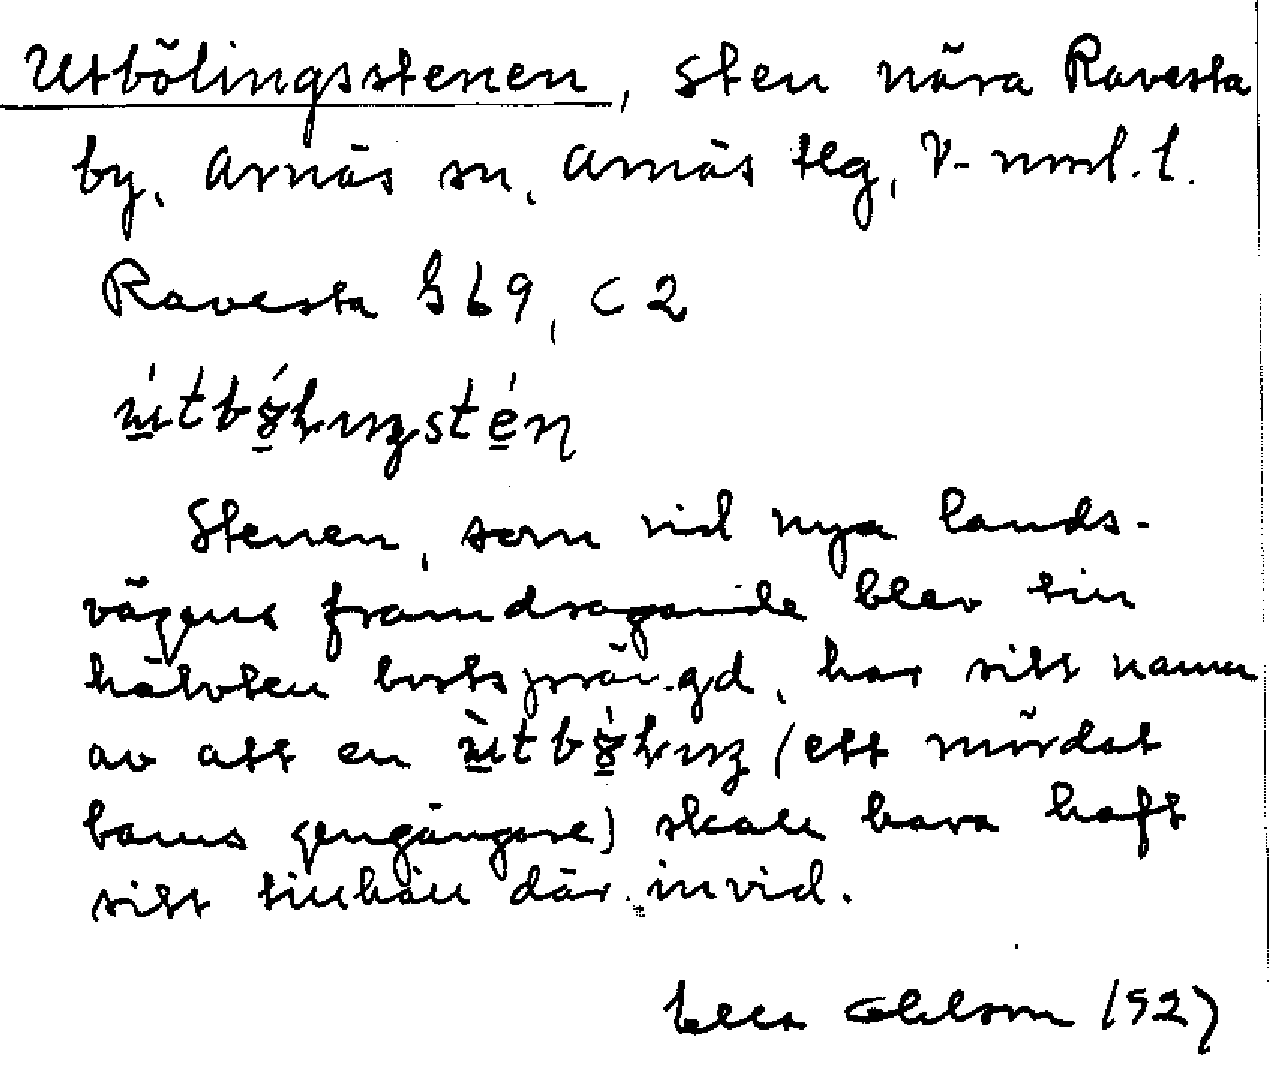 Utbölingsstenen, sten nära Ravesta
by, Arnäs sn, Arnäs tlg, V-nml. l.
Ravesta S69, C2
Stenen, som vid nya lands-
vägens framdragande blev till
hälvten bortsprängd, har sitt namn
av att en (ett mördat
barns gengångare) skall bara haft
sitt tillhåll där invid.
Ohlsson 1527